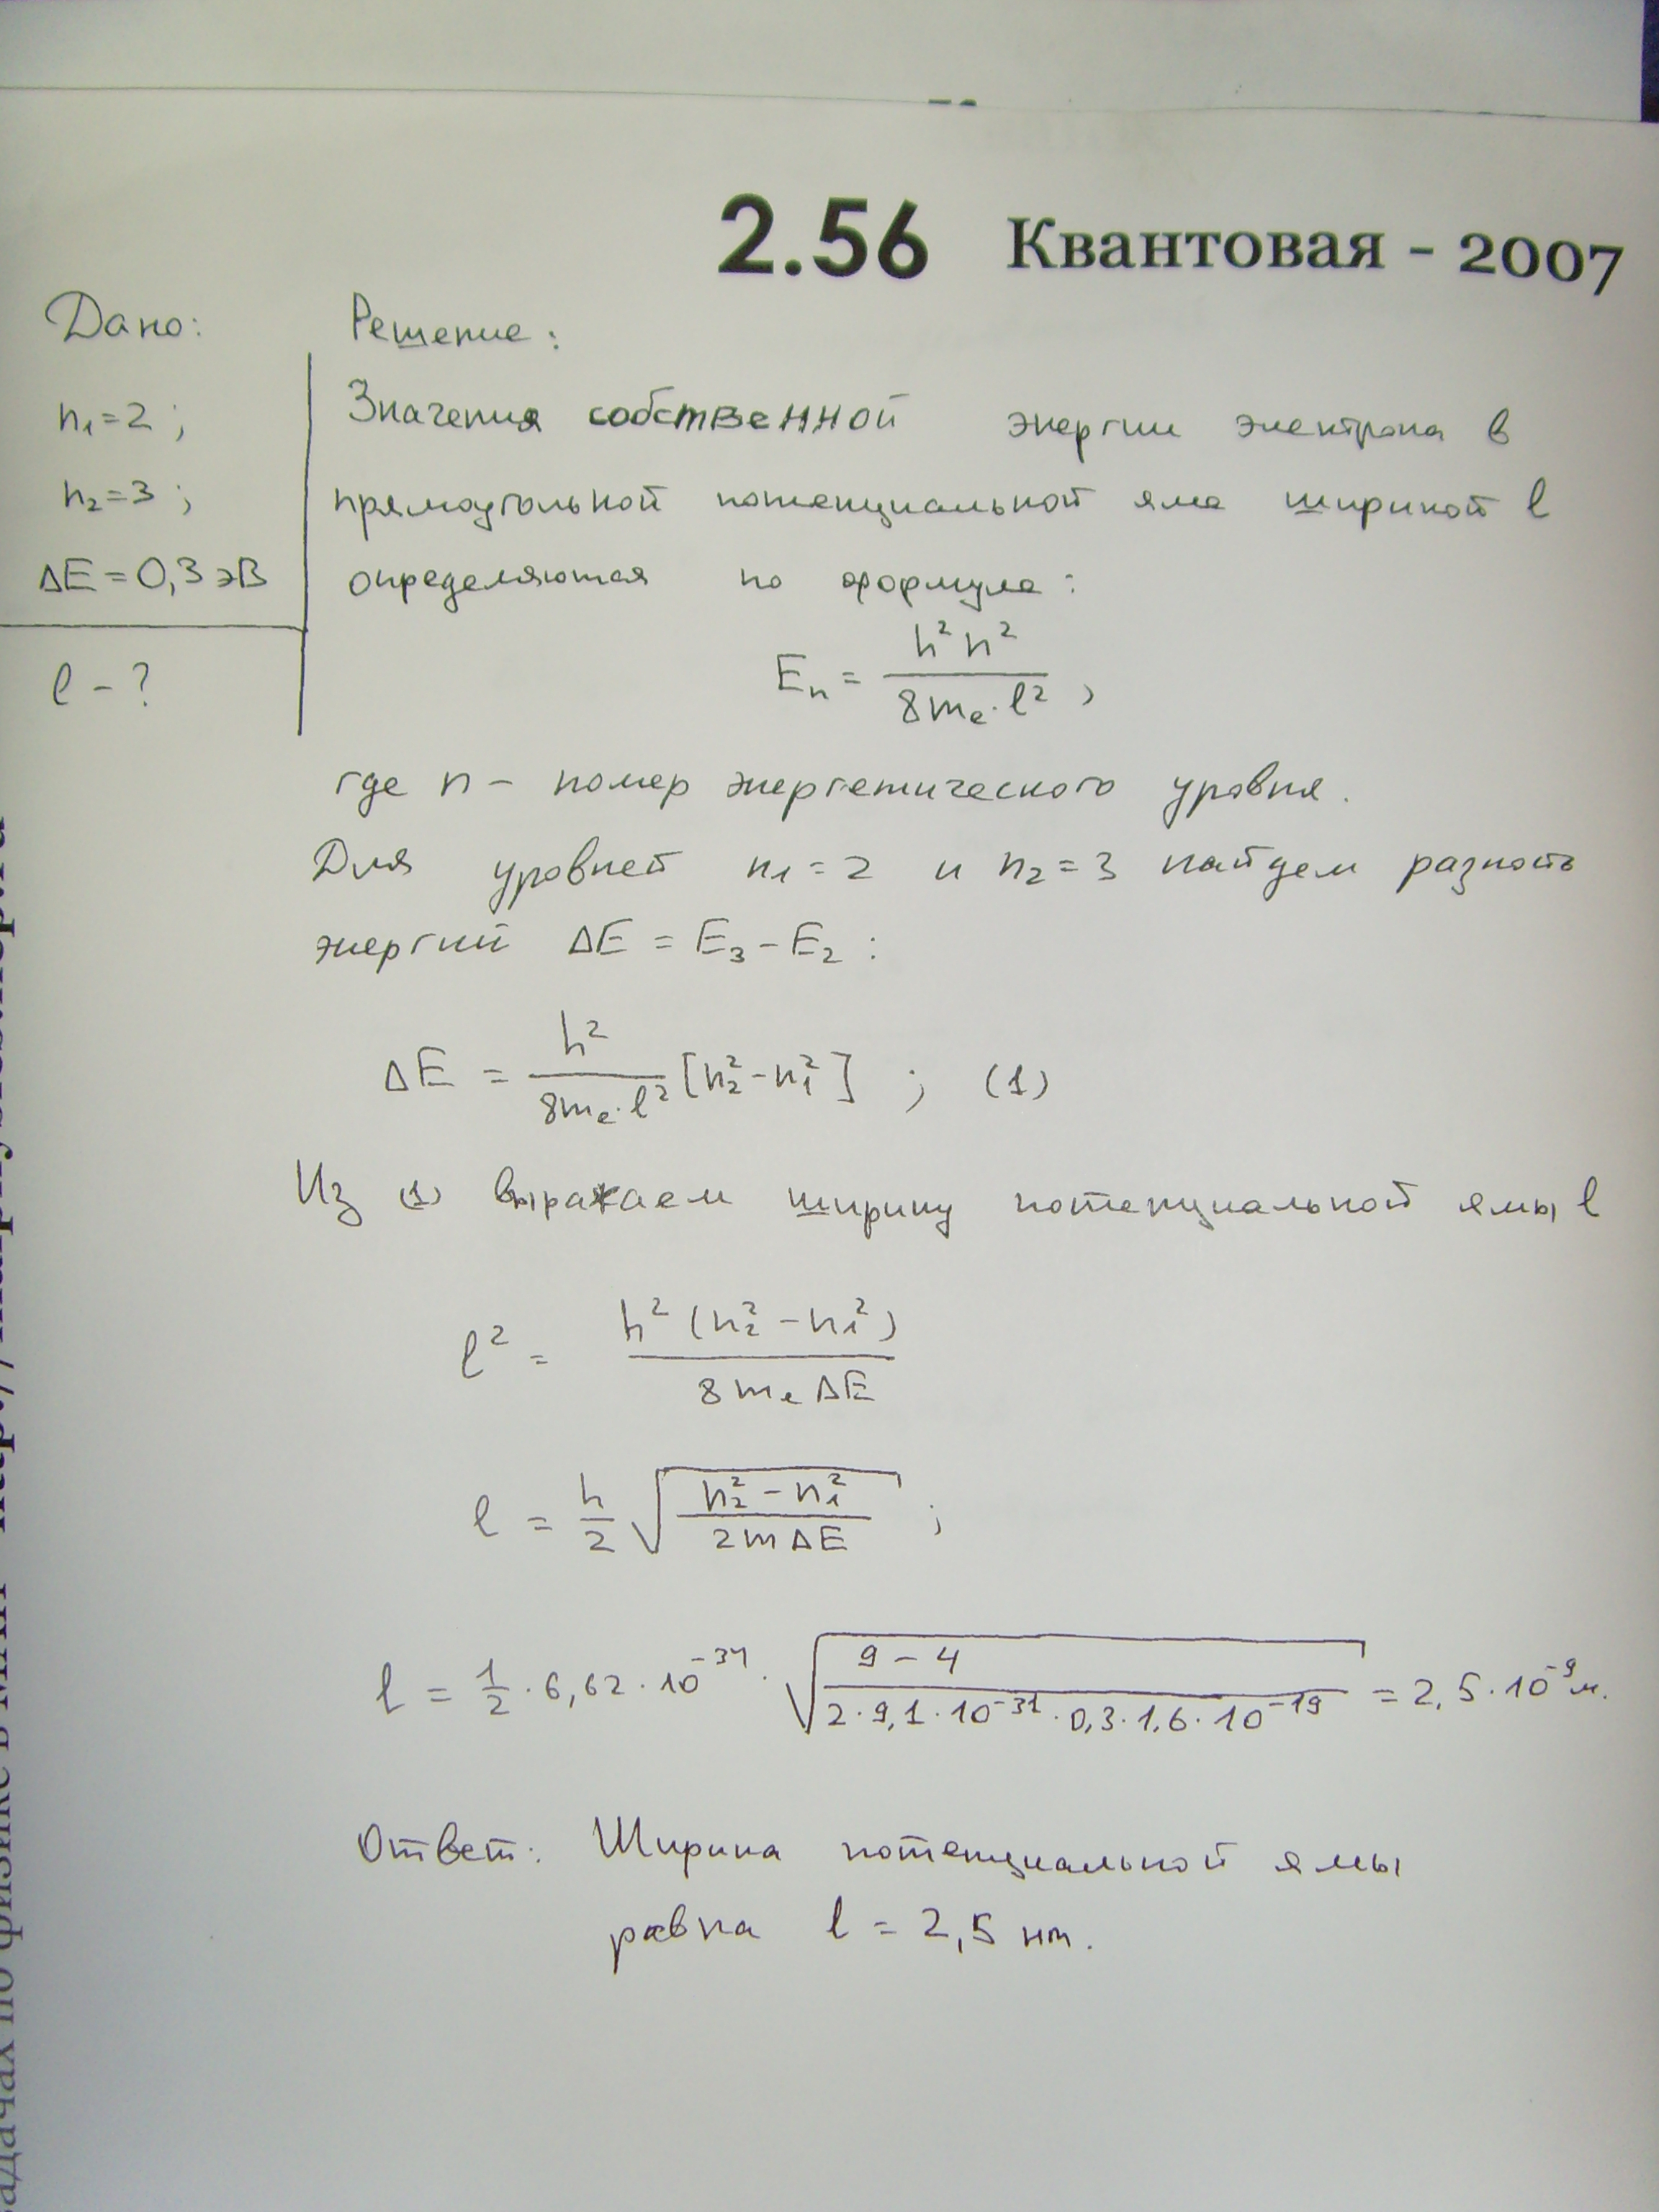 2.56 Квантовая - 2007
Дано:
n₁=2;
n₂=3;
ΔE=0,3эВ
l-?
Решение:
Значения собственной энергии электрона в
прямоугольной потенциальной яме шириной l
определяются по формуле:
Eₙ = h²n² / 8mₑ·l² ,
где n – номер энергетического уровня.
Для уровней n₁=2 и n₂=3 найдем разность
энергий ΔE = E₃-E₂ :
ΔE = h² / 8mₑ·l² [n₂²-n₁²] ; (1)
Из (1) выражаем ширину потенциальной ямы l
l² = h²(n₂²-n₁²) / 8mₑΔE
l = h/2 √(n₂²-n₁² / 2mΔE) ;
l = 1/2·6,62·10⁻³⁴·√(9-4 / 2·9,1·10⁻³¹·0,3·1,6·10⁻¹⁹) = 2,5·10⁻⁹м.
Ответ: Ширина потенциальной ямы
равна l = 2,5 нм.